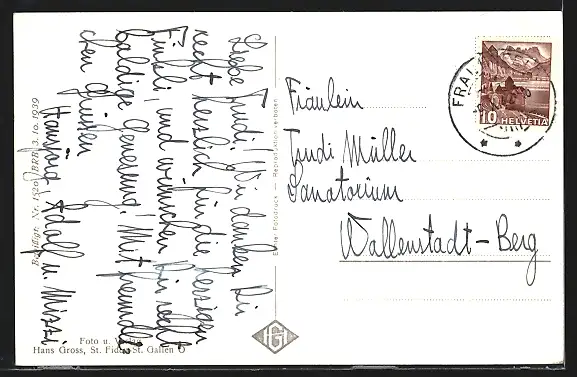 Liebe Trudi! Wir danken Dir
recht herzlich für die herzigen
Finkli und wünschen Dir recht
baldige Genesung! Mit freundli-
chen Grüßen
Adolf u. Mizzi
Fräulein
Trudi Müller
Sanatorium
Wallenstadt-Berg
10 HELVETIA
Echte Fotodruck — Reproduktion verboten
BRB 3. 10. 1939
Foto u. Verlag
Hans Gross, St. Fiden-St. Gallen O